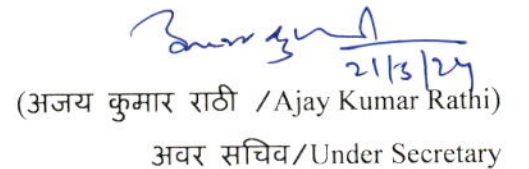 21/3/24
(अजय कुमार राठी /Ajay Kumar Rathi)
अवर सचिव/Under Secretary